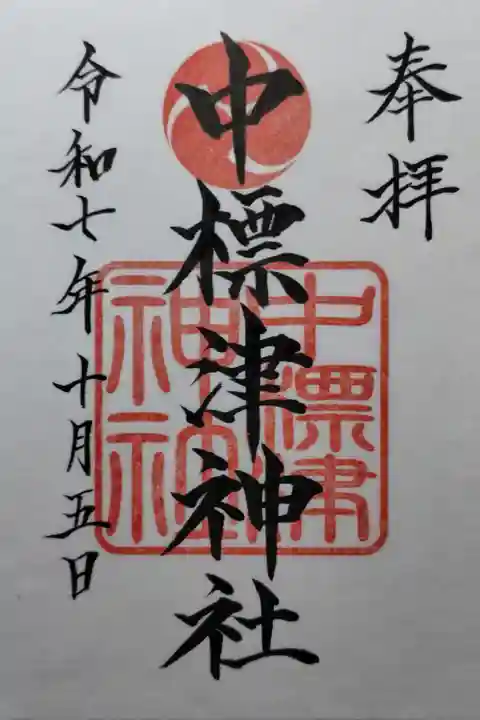 奉拝
中標津神社
中標津
神社
令和七年十月五日